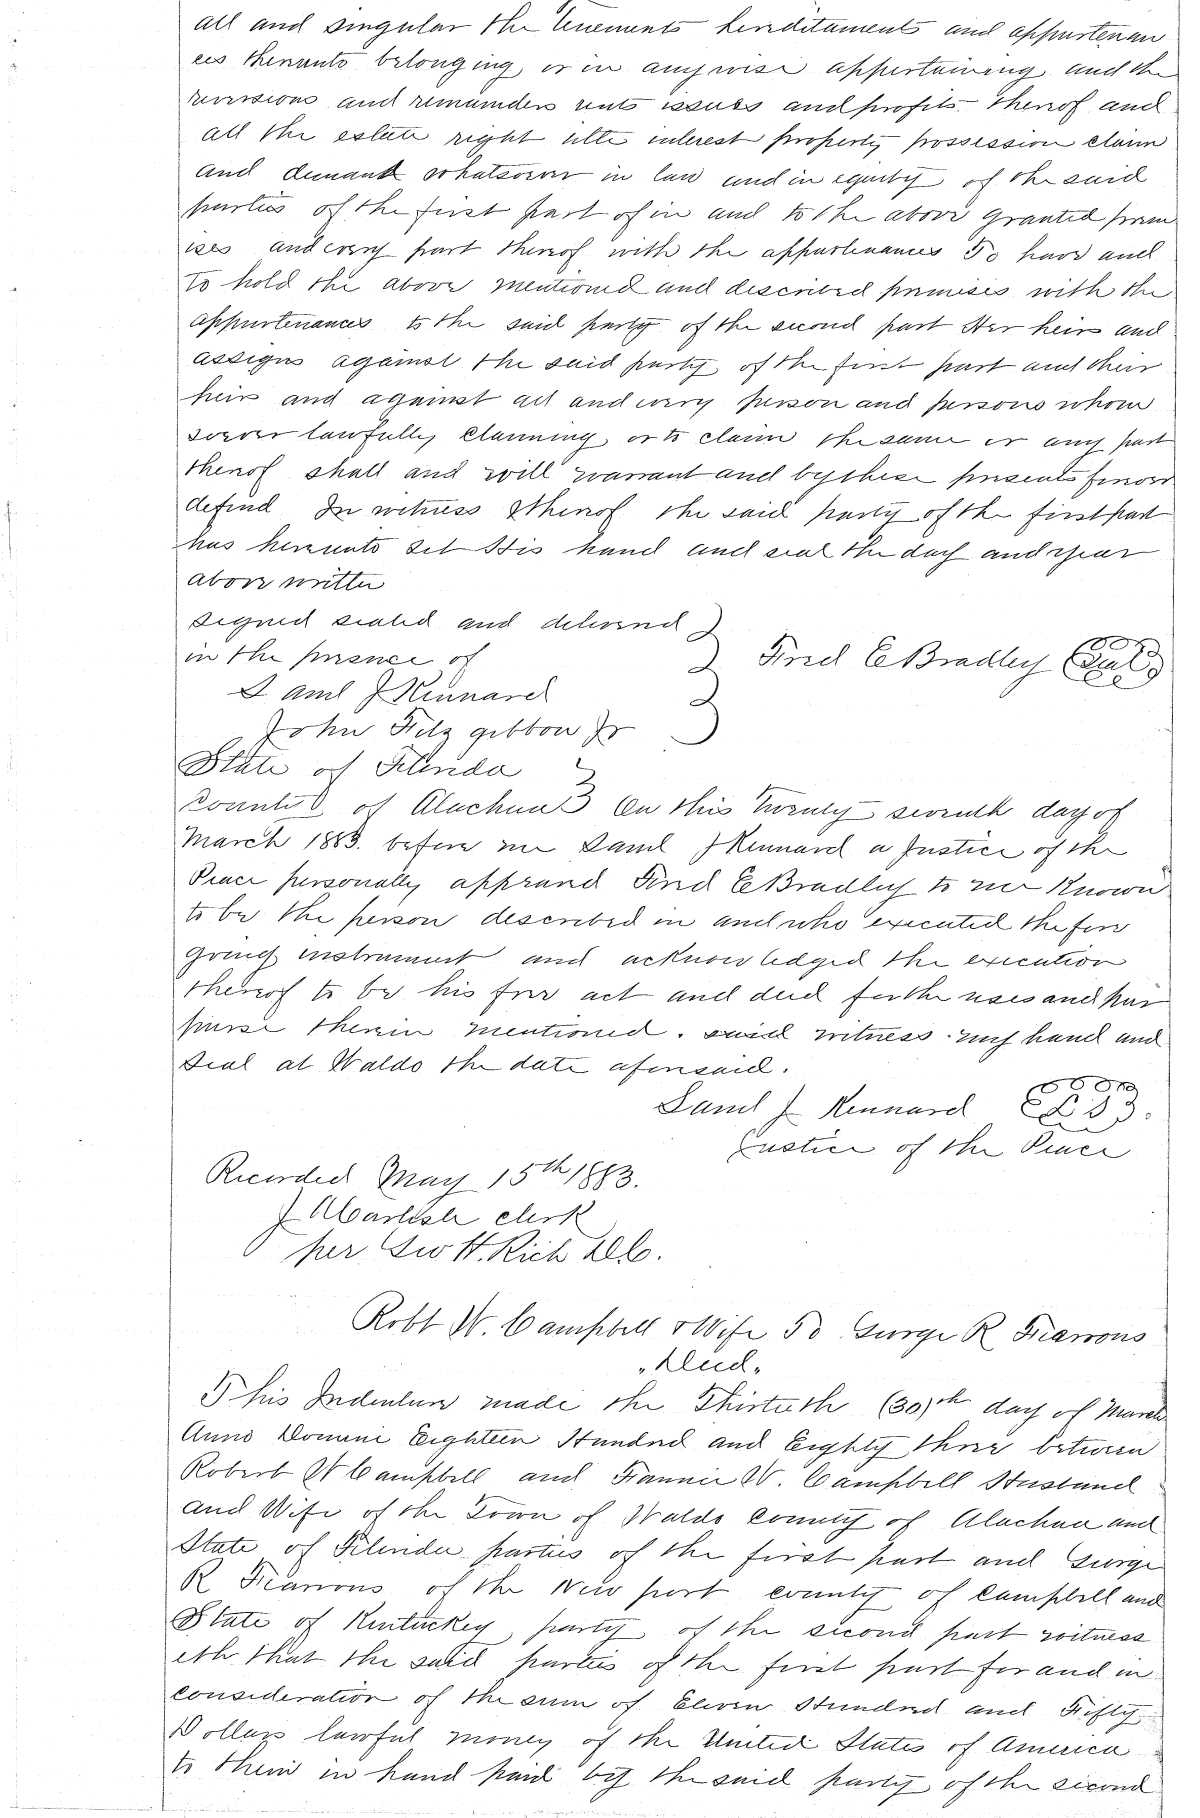 all and singular the tenements hereditaments and appurtenan
ces thereunto belonging or in anywise appertaining and the
reversions and remainders rents issues and profits thereof and
all the estate right title interest property possession claim
and demand whatsoever in law and in equity of the said
parties of the first part of in and to the above granted prem
ises and every part thereof with the appurtenances To have and
to hold the above mentioned and described premises with the
appurtenances to the said party of the second part Her heirs and
assigns against the said party of the first part and their
heirs and against all and every person and persons whom
soever lawfully claiming or to claim the same or any part
thereof shall and will warrant and by these presents forever
defend In witness Whereof the said party of the first part
has hereunto set His hand and seal the day and year
above written
signed sealed and delivered
in the presence of Fred E Bradley Seal
Saml J Kennard
John Fitz gibbon Jr
State of Florida
County of Alachua On this twenty seventh day of
March 1883. before me Saml J Kennard a Justice of the
Peace personally appeared Fred E Bradley to me Known
to be the person described in and who executed the fore
going instrument and acknowledged the execution
thereof to be his free act and deed for the uses and pur
purse therein mentioned. said witness my hand and
Seal at Waldo the date aforesaid.
Saml J Kennard
Justice of the Peace
Recorded May 15th 1883.
J A Carlisle clerk
per Geo H. Rich D.C.
Robt W. Campbell & Wife To George R Fearons
"Deed"
This Indenture made the Thirtieth (30)th day of March
Anno Domini Eighteen Hundred and Eighty three between
Robert W Campbell and Fannie W. Campbell Husband
and Wife of the Town of Waldo County of Alachua and
State of Florida parties of the first part and George
R Fearons of the New port county of Campbell and
State of Kentuckey party of the second part witness
eth that the said parties of the first part for and in
consideration of the sum of Eleven Hundred and Fifty
Dollars lawful money of the United States of America
to them in hand paid by the said party of the second